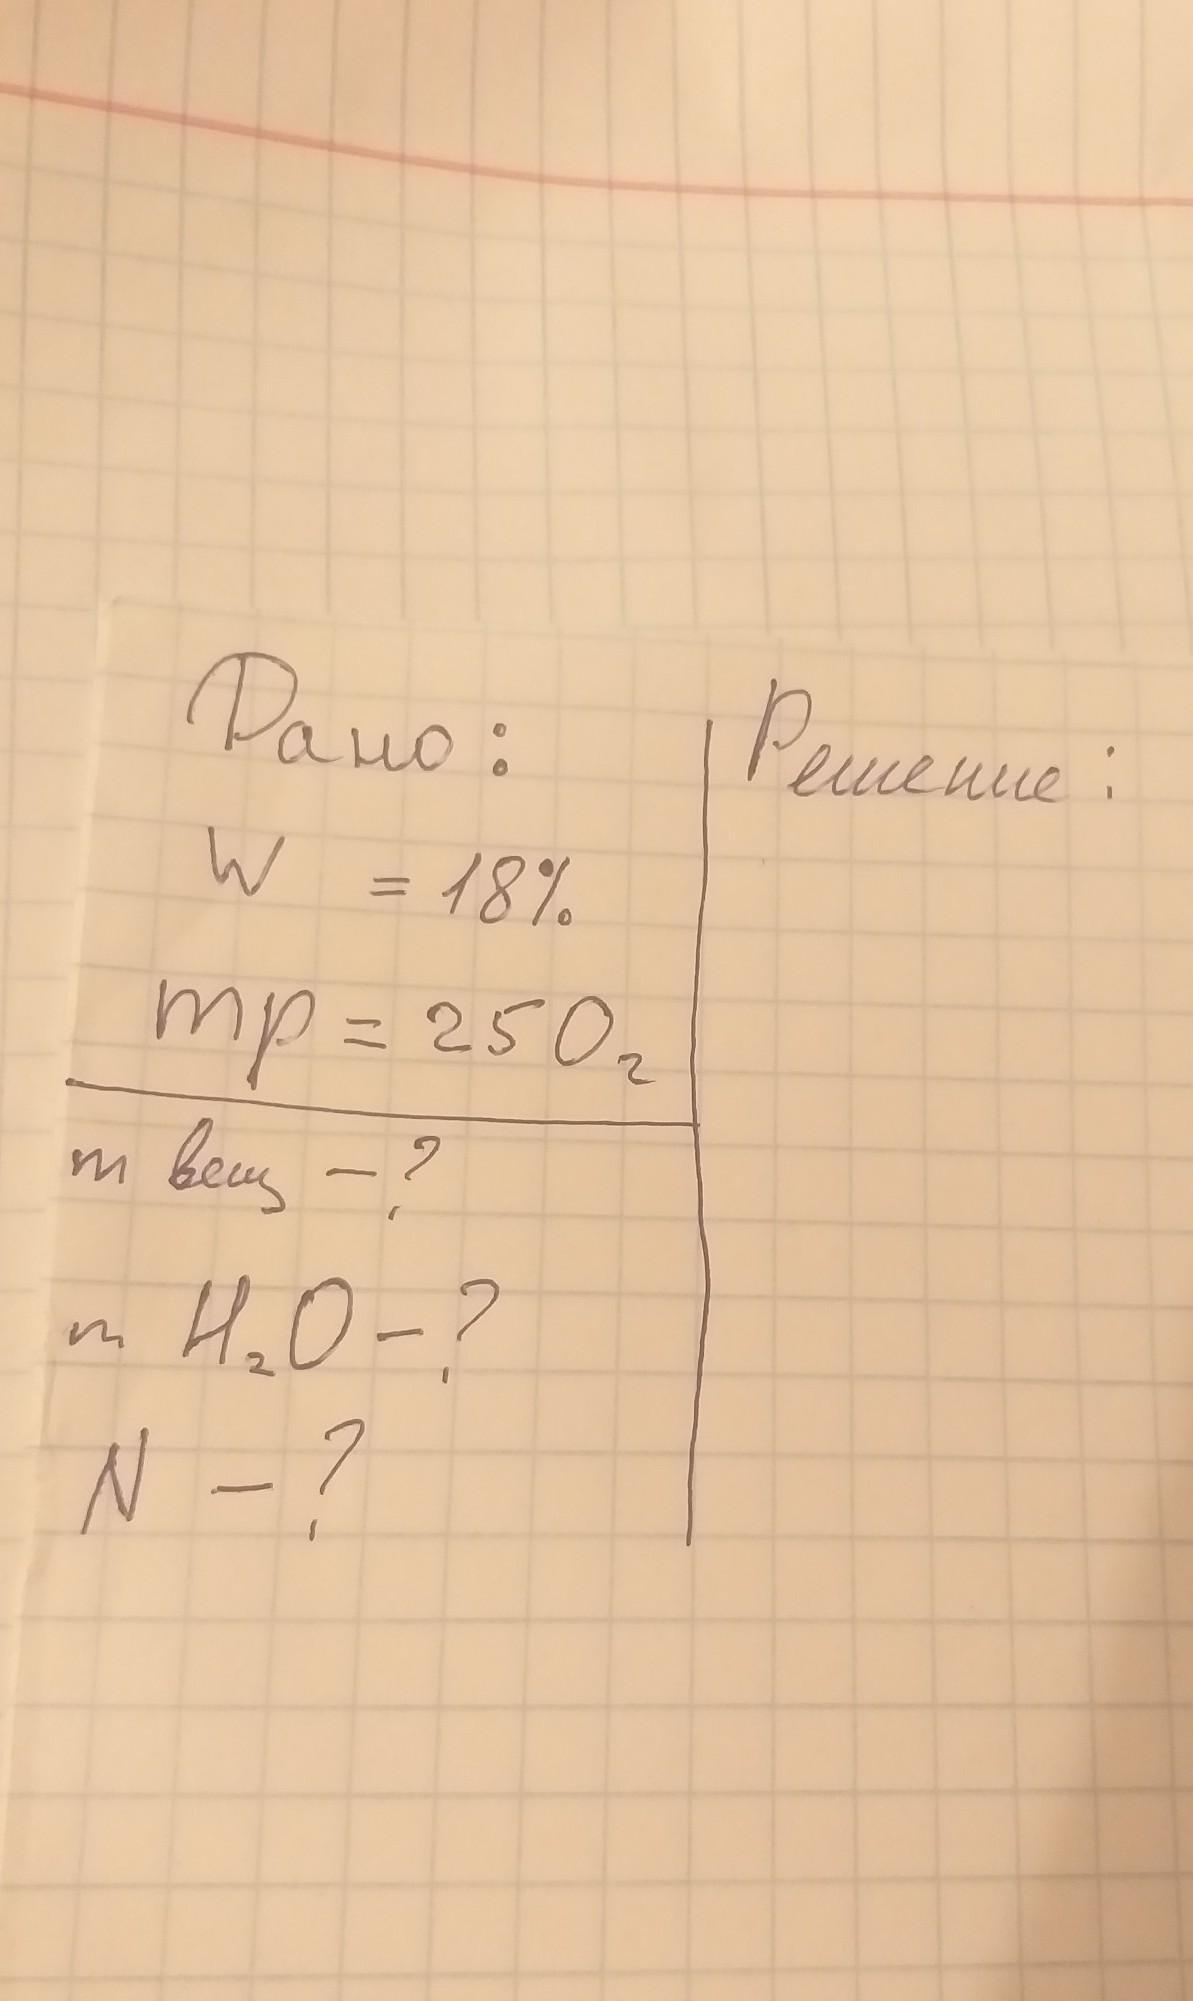 Дано:
W = 18%
mp = 250г
m вещ - ?
m H₂O - ?
N - ?
Решение: